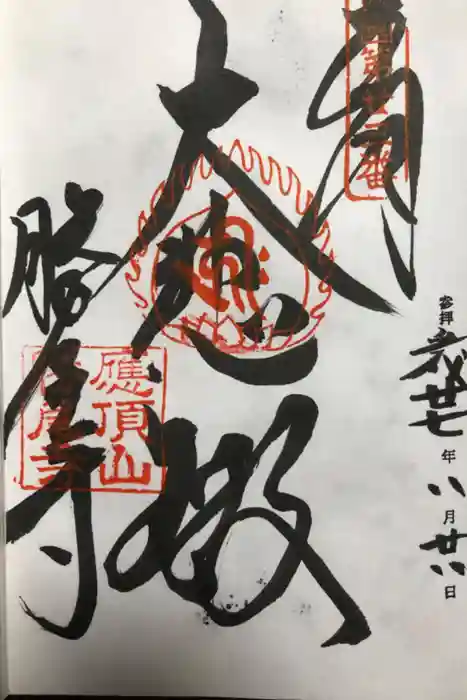 奉
國第廿三番
參拝 平成廿七年八月廿八日
大悲殿
勝尾寺
應頂山
勝尾寺